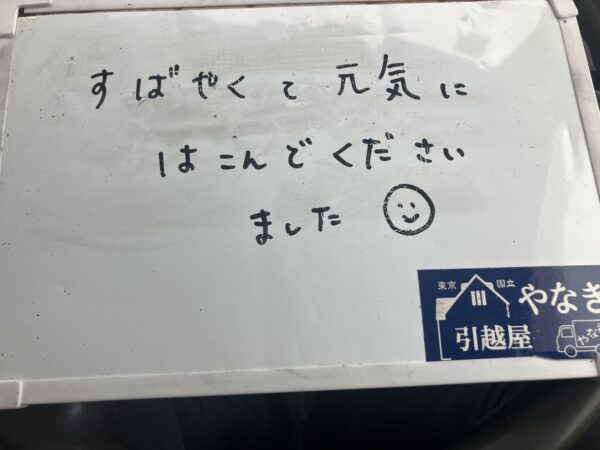 すばやくて元気に
はこんでください
ました
東京 国立
やなき
引越屋
やなき